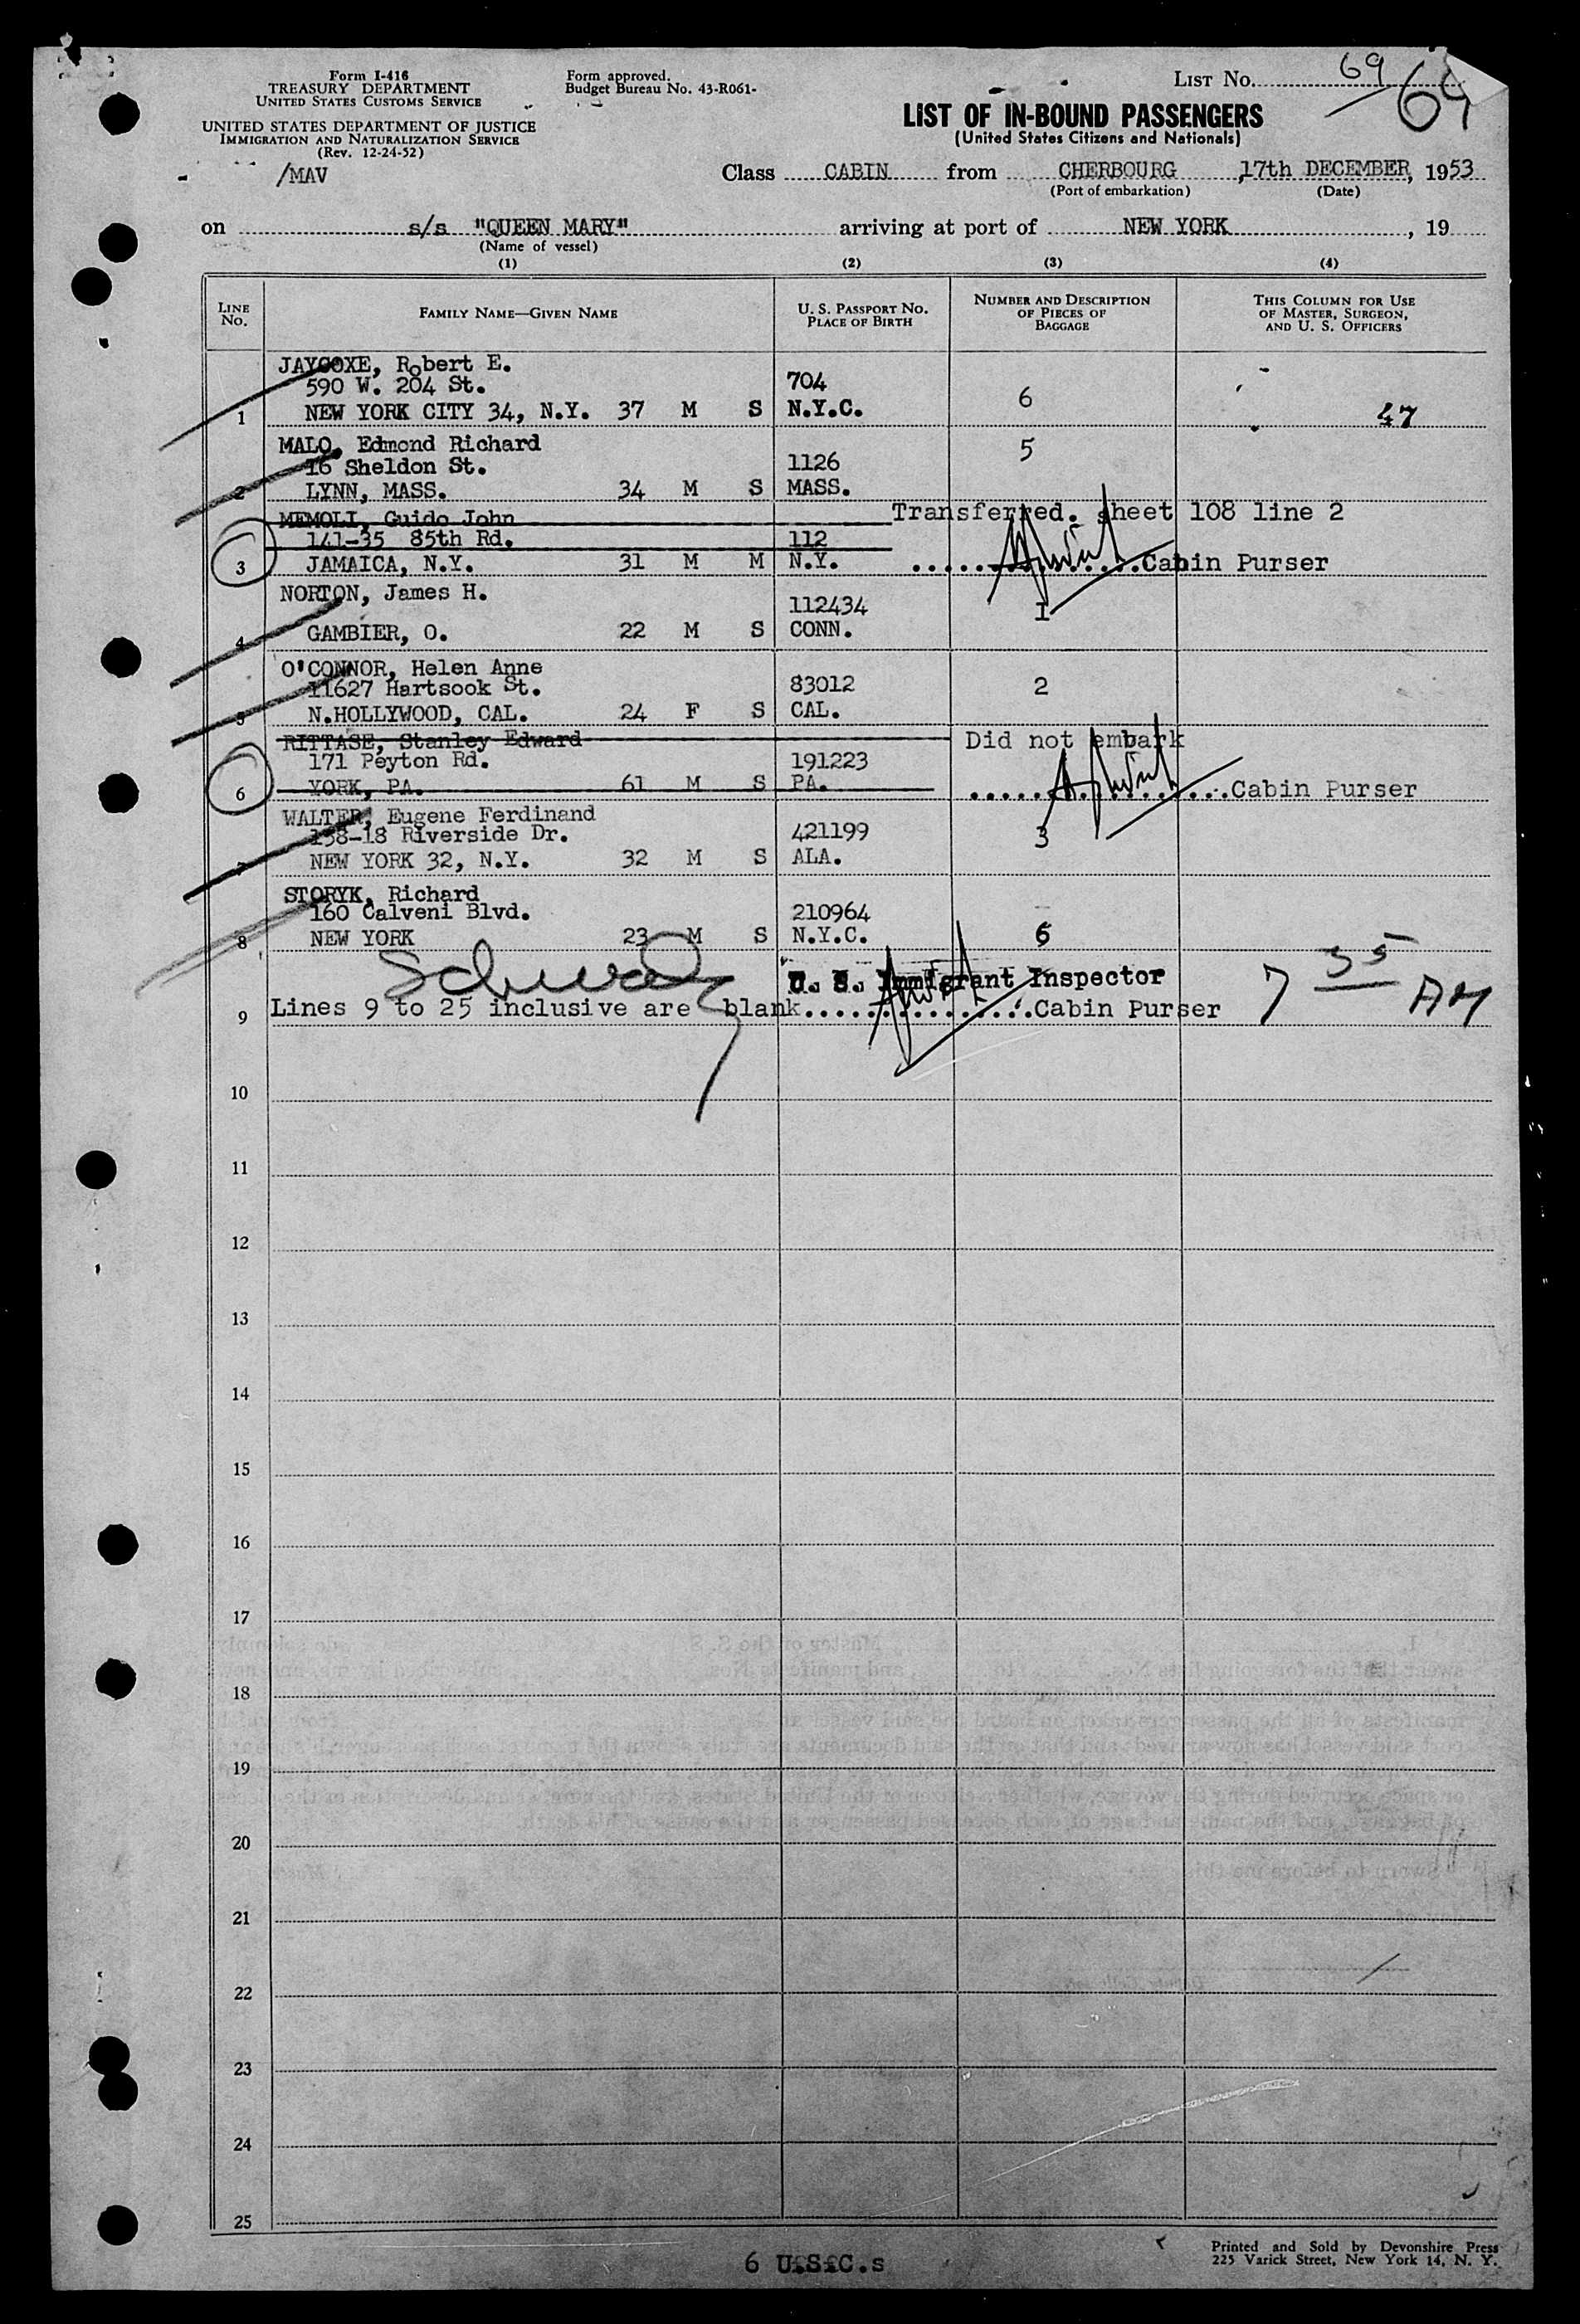 Form I-416
TREASURY DEPARTMENT
UNITED STATES CUSTOMS SERVICE
UNITED STATES DEPARTMENT OF JUSTICE
IMMIGRATION AND NATURALIZATION SERVICE
(Rev. 12-24-52)
/MAV
Form approved.
Budget Bureau No. 43-R061-
LIST NO. 69
69
LIST OF IN-BOUND PASSENGERS
(United States Citizens and Nationals)
Class CABIN from CHERBOURG, 17th DECEMBER, 1953
(Port of embarkation) (Date)
on s/s "QUEEN MARY" arriving at port of NEW YORK, 19
(Name of vessel)
(1) (2) (3) (4)
LINE NO.
FAMILY NAME—GIVEN NAME
U. S. PASSPORT NO.
PLACE OF BIRTH
NUMBER AND DESCRIPTION
OF PIECES OF
BAGGAGE
THIS COLUMN FOR USE
OF MASTER, SURGEON,
AND U. S. OFFICERS
JAYCOXE, Robert E.
590 W. 204 St. 704
1 NEW YORK CITY 34, N.Y. 37 M S N.Y.C. 6 47
MALO, Edmond Richard 5
16 Sheldon St. 1126
2 LYNN, MASS. 34 M S MASS.
MEMOLI, Guido John Transferred. sheet 108 line 2
141-35 85th Rd. 112
3 JAMAICA, N.Y. 31 M M N.Y. Cabin Purser
NORTON, James H. 112434 1
4 GAMBIER, O. 22 M S CONN.
O'CONNOR, Helen Anne
11627 Hartsook St. 83012 2
5 N.HOLLYWOOD, CAL. 24 F S CAL.
RITTASE, Stanley Edward Did not embark
171 Peyton Rd. 191223
6 YORK, PA. 61 M S PA. Cabin Purser
WALTER, Eugene Ferdinand
158-18 Riverside Dr. 421199 3
7 NEW YORK 32, N.Y. 32 M S ALA.
STORYK, Richard
160 Calveni Blvd. 210964
8 NEW YORK 23 M S N.Y.C. 6
U. S. Immigrant Inspector 7 35 AM
9 Lines 9 to 25 inclusive are blank Cabin Purser
10
11
12
13
14
15
16
17
18
19
20
21
22
23
24
25
6 U.S.C.s
Printed and Sold by Devonshire Press
225 Varick Street, New York 14, N. Y.